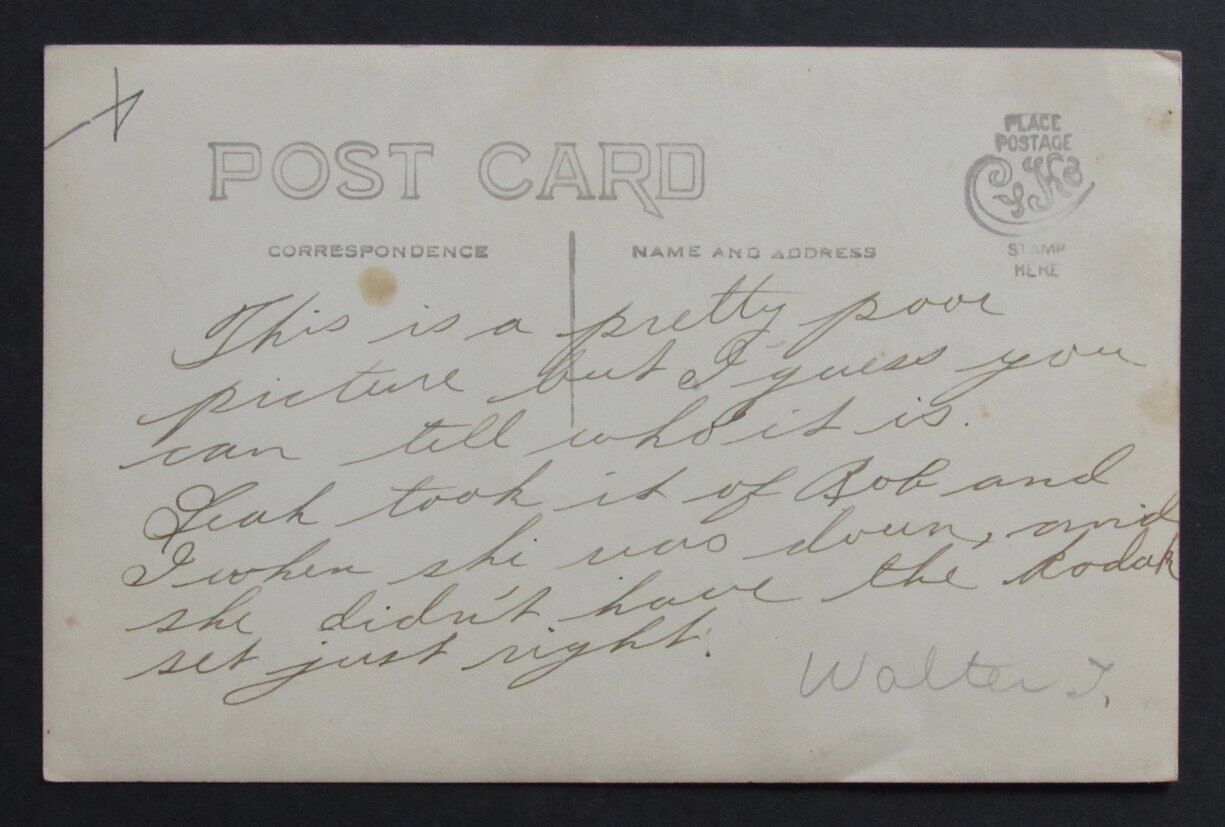 PLACE
POSTAGE
POST CARD
CYKO
STAMP
HERE
CORRESPONDENCE
NAME AND ADDRESS
This is a pretty poor
picture but I guess you
can tell who it is.
Leah took it of Rob and
I when she was down, and
she didn't have the Kodak
set just right.
Walter